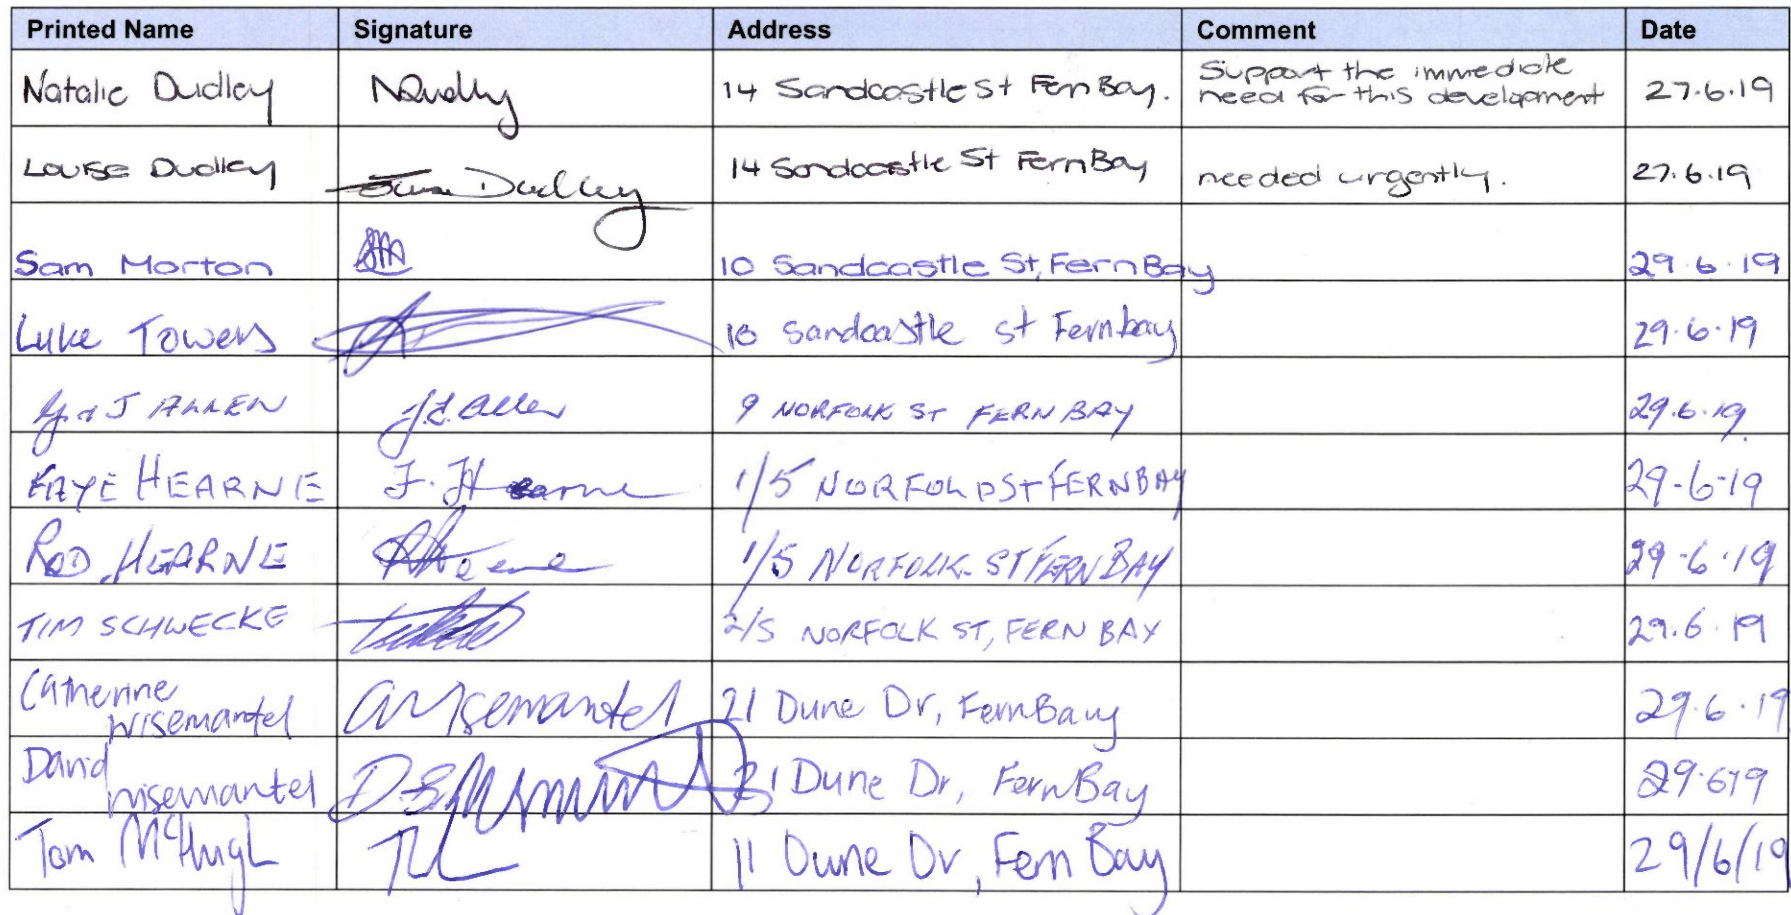 Printed Name Signature Address Comment Date
Natalie Dudley NDudley 14 Sandcastle St Fern Bay. Support the immediate
need for this development 27.6.19
Louise Dudley Dudley 14 Sandcastle St Fern Bay needed urgently. 27.6.19
Sam Morton 10 Sandcastle St, Fern Bay 29.6.19
Luke Towers 10 Sandcastle st Fernbay 29.6.19
J ALLEN 9 NORFOLK ST FERN BAY 29.6.19
FAYE HEARNE F. Hearne 1/5 NORFOLD ST FERN BAY 29-6-19
ROD HEARNE 1/5 NORFOLK ST FERN BAY 29-6-19
TIM SCHWECKE 2/5 NORFOLK ST, FERN BAY 29.6.19
Catherine
Wisemantel CWisemantel 21 Dune Dr, Fern Bay 29.6.19
David
Wisemantel 21 Dune Dr, Fern Bay 29.619
Tom McHugh 11 Dune Dr, Fern Bay 29/6/19